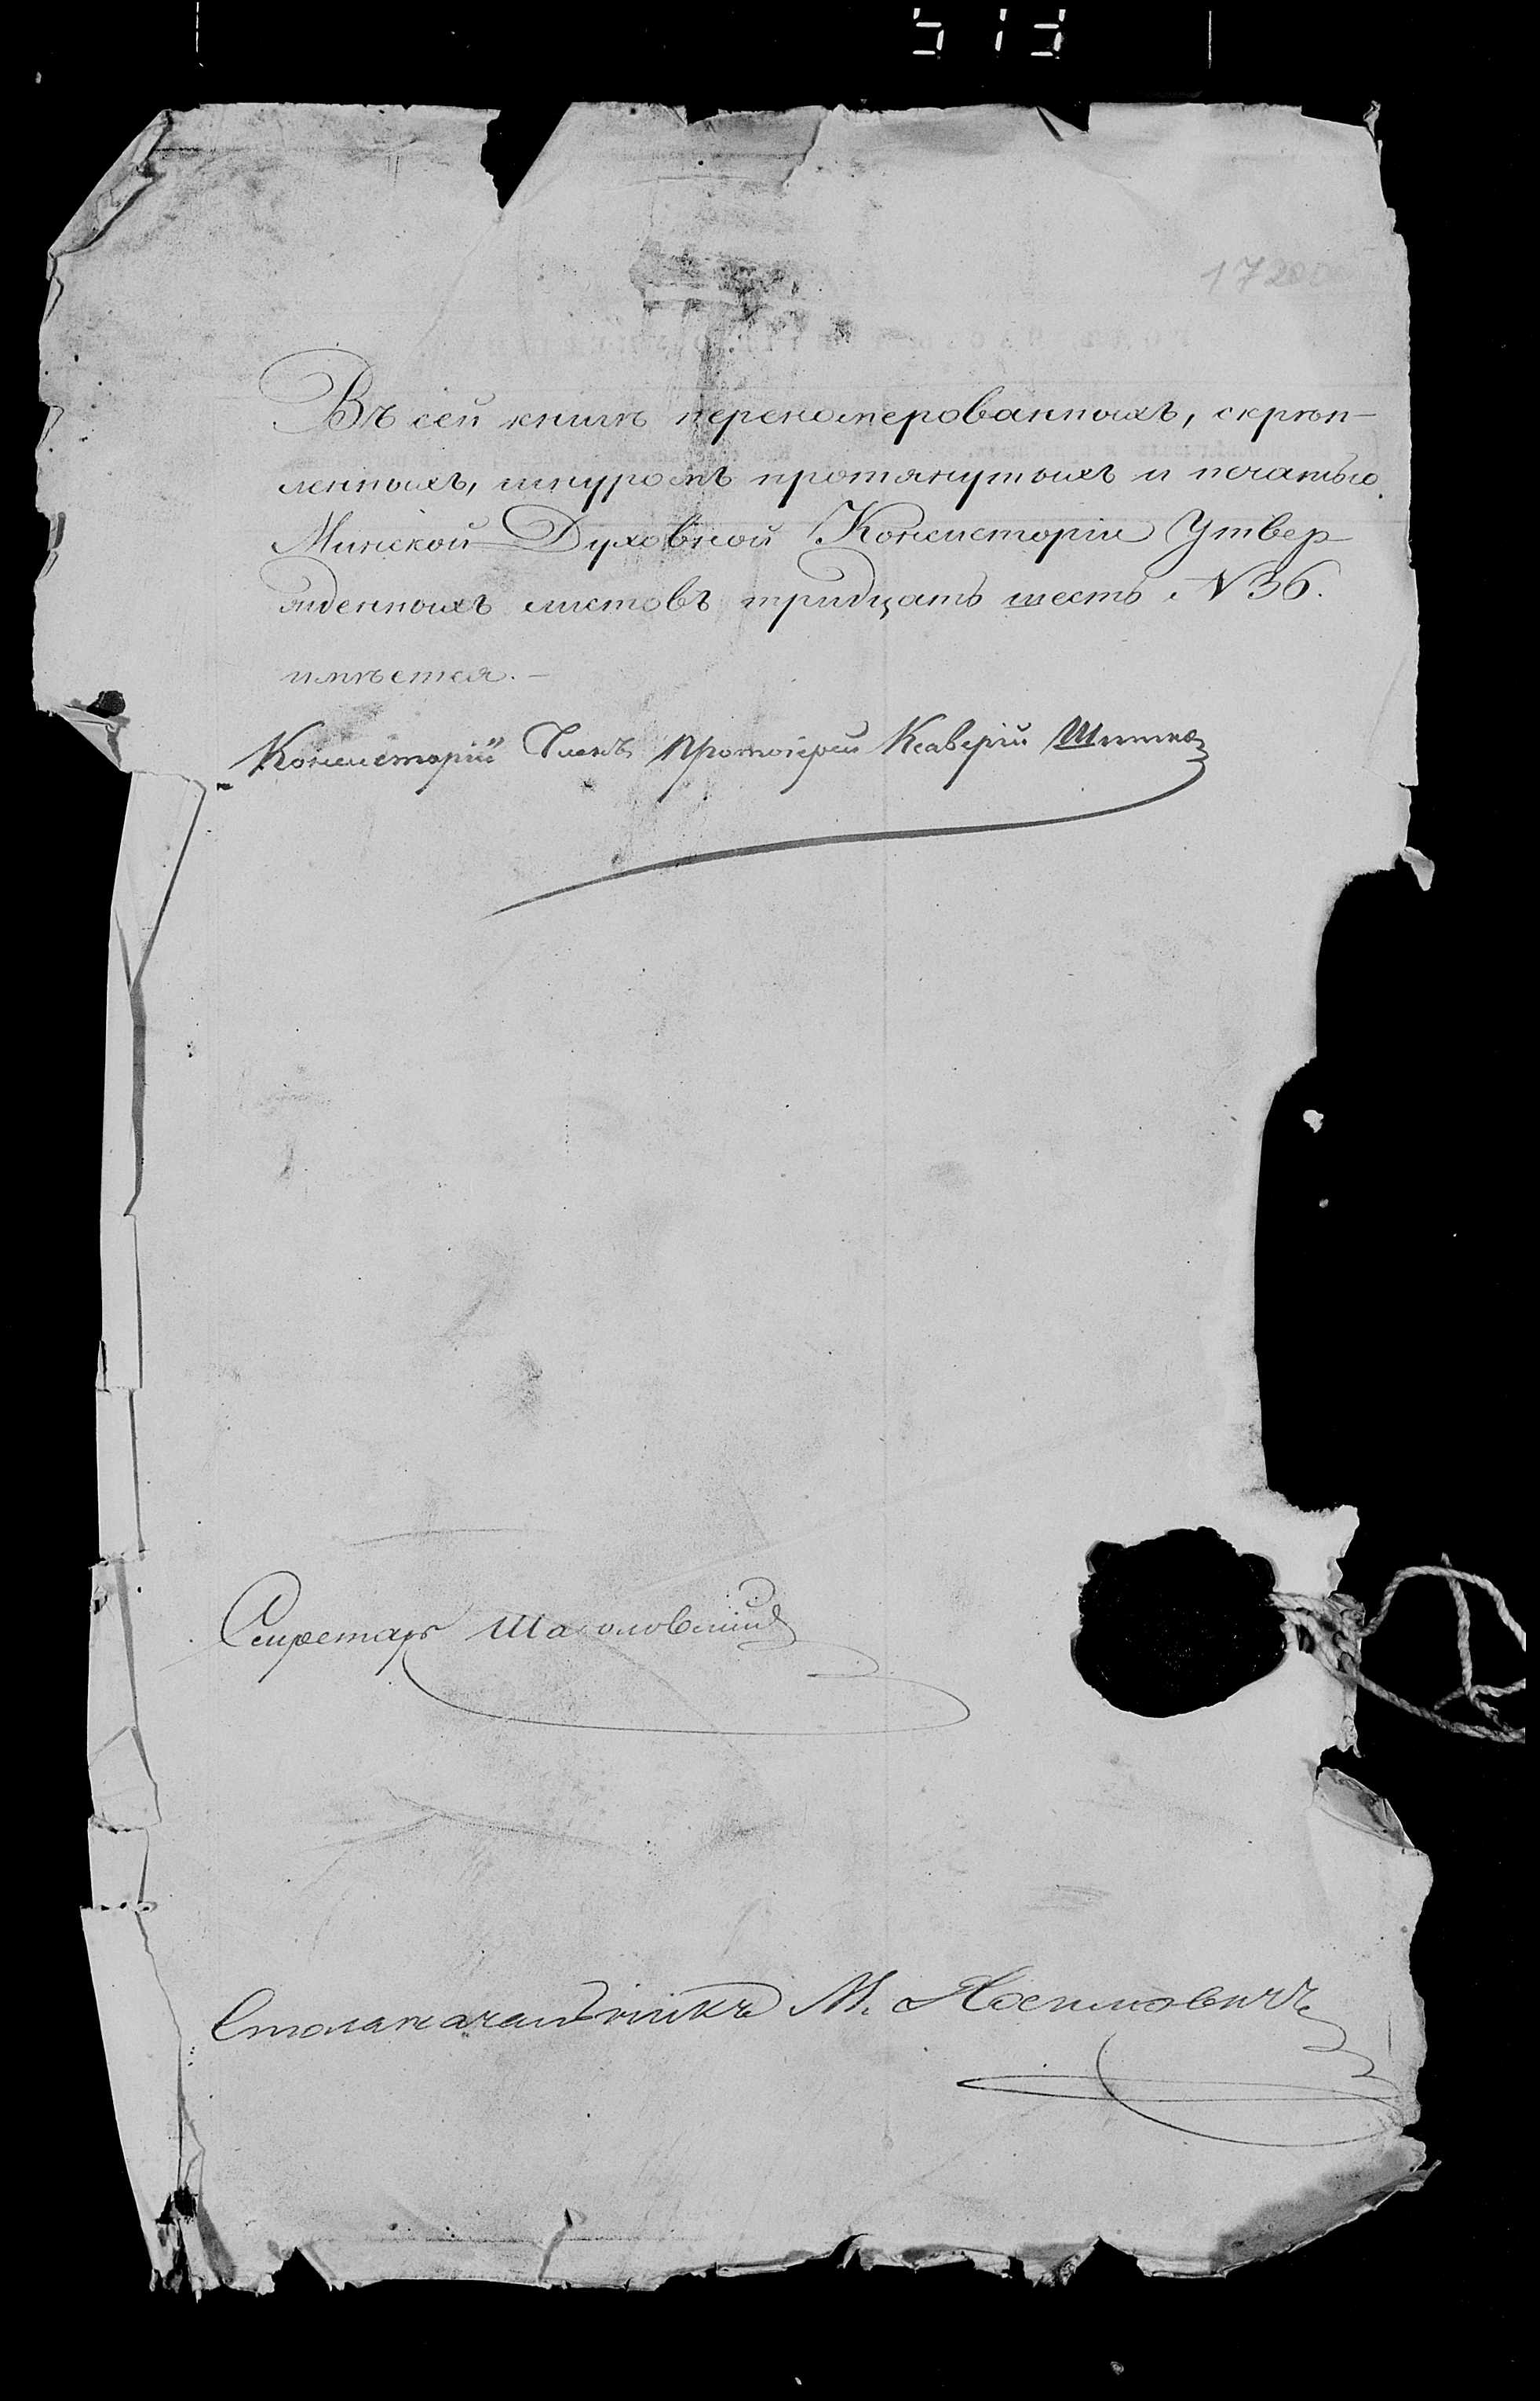 513
172
Въ сей книгѣ перекомерованныхъ, скрѣп-
ленныхъ, шнуромъ протянутыхъ и печатью
Минской Духовной Консисторіи Утвер
жденныхъ листовъ тридцать шесть N 36.
имѣется.-
Консисторіи Членъ Протоіерей Ксаверій
Секретарь
Столоначальникъ М.